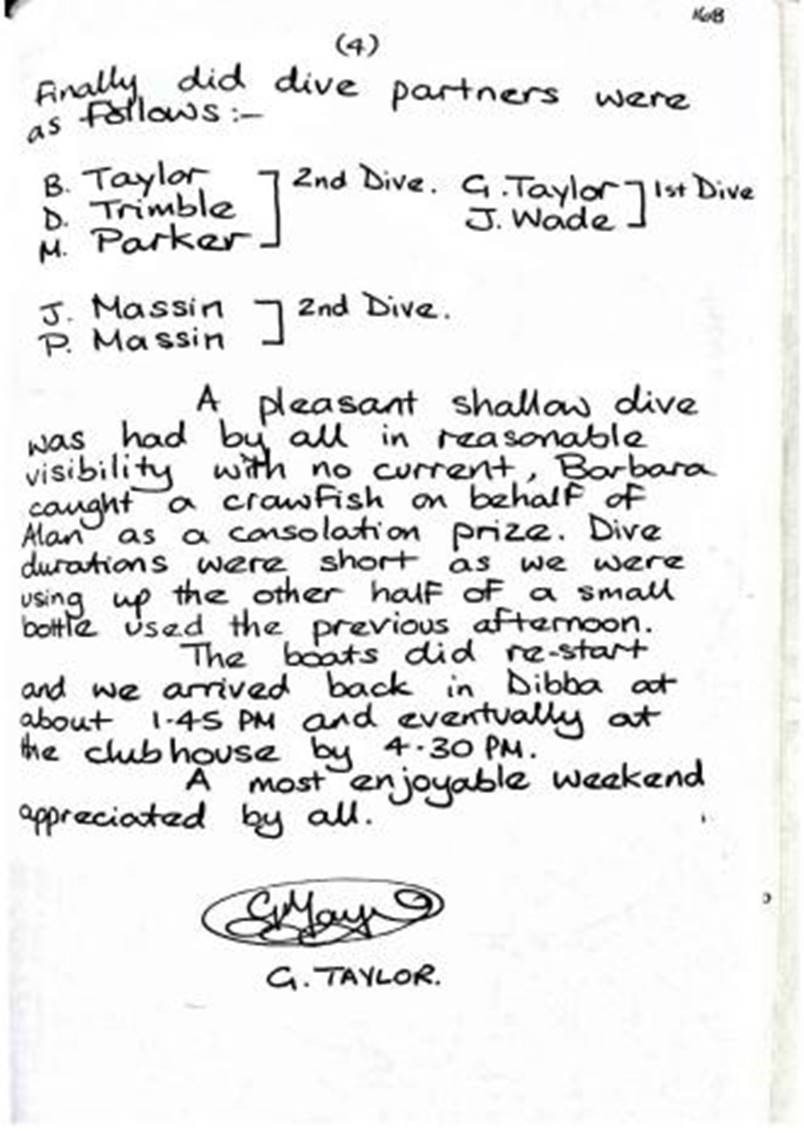 168
(4)
Finally did dive partners were
as follows :-
B. Taylor ] 2nd Dive. G. Taylor ] 1st Dive
D. Trimble J. Wade
M. Parker
J. Massin ] 2nd Dive.
P. Massin
A pleasant shallow dive
was had by all in reasonable
visibility with no current, Barbara
caught a crawfish on behalf of
Alan as a consolation prize. Dive
durations were short as we were
using up the other half of a small
bottle used the previous afternoon.
The boats did re-start
and we arrived back in Dibba at
about 1-45 PM and eventually at
the clubhouse by 4.30 PM.
A most enjoyable weekend
appreciated by all.
G. TAYLOR.